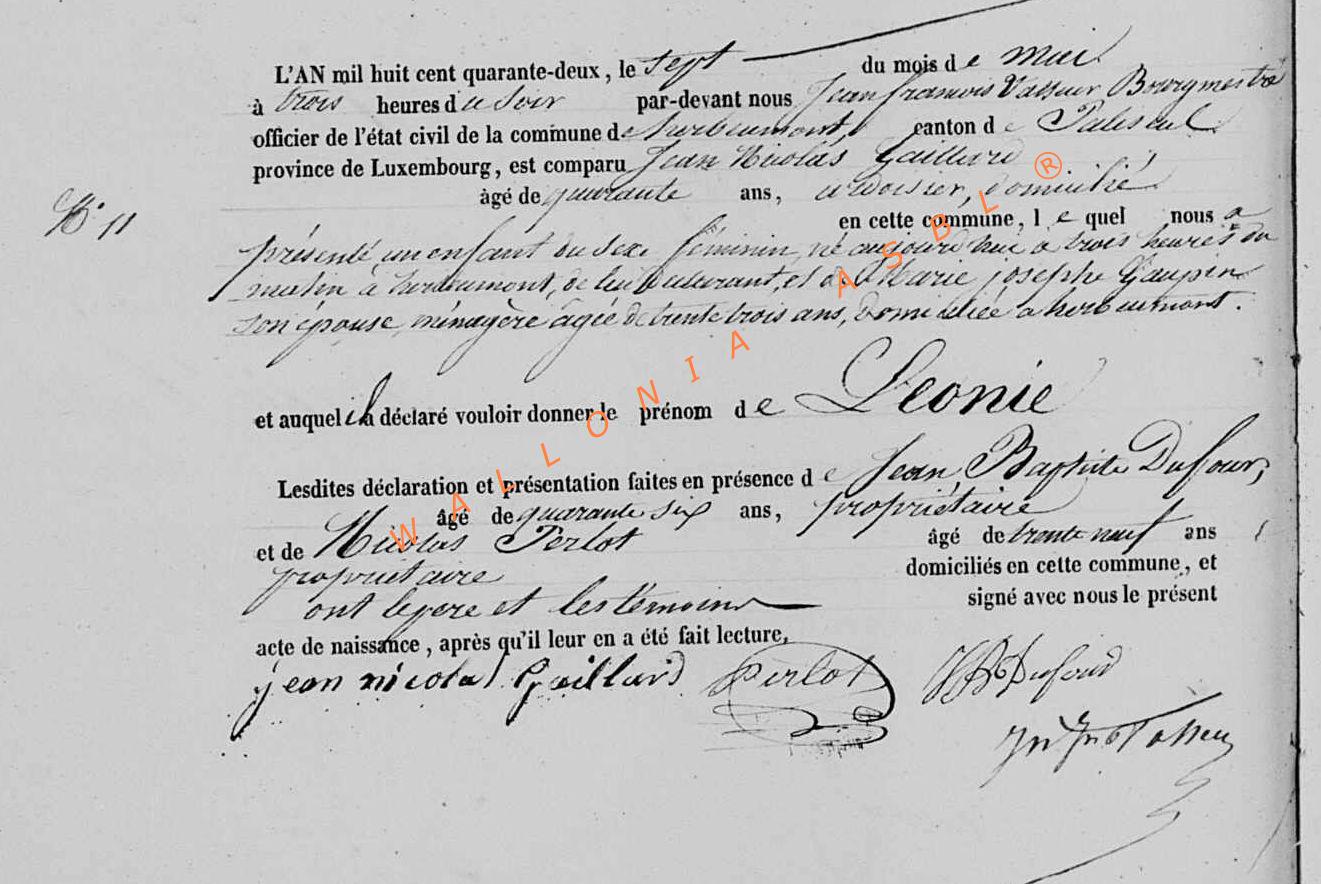 L'AN mil huit cent quarante-deux, le sept du mois de mai
à trois heures du soir par-devant nous Jean françois Vasseur Bourgmestre
officier de l'état civil de la commune de herbeumont, canton de Paliseul
province de Luxembourg, est comparu Jean Nicolas Gaillard
âgé de quarante ans, ardoisier, domicilié
N° 11
en cette commune, lequel nous a
présenté un enfant du sexe féminin, né aujourd'hui à trois heures du
matin à herbeumont, de lui Déclarant, et de Marie josephe Gaupin
son épouse, ménagère âgée de trente trois ans, domiciliée a herbeumont.
et auquel il a déclaré vouloir donner le prénom de Leonie
Lesdites déclaration et présentation faites en présence de Jean Baptiste Dufour,
âgé de quarante six ans, propriétaire
et de Nicolas Perlot âgé de trente neuf ans
propriétaire domiciliés en cette commune, et
ont le pere et les témoins signé avec nous le présent
acte de naissance, après qu'il leur en a été fait lecture.
jean nicolas Gaillard Perlot JB Dufour
WALLONIA ASBL ®